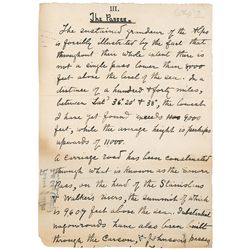 III.
The Passes.
The sustained grandeur of the Alps
is forcibly illustrated by the fact that
throughout their whole extent there is
not a single pass lower than 9000
feet above the level of the sea. In a
distance of a hundred & forty miles,
between Lat. 36° 20' & 38°, the lowest
I have yet found exceeds 9000
feet, while the average height is perhaps
upwards of 11000.
A carriage road has been constructed
through what is known as the Sonora
Pass, on the head of the Stanislaus
& Walker's rivers, the summit of which
is 9607 feet above the sea. Substantial
wagonroads have also been built
through the Carson, & Johnson's passes